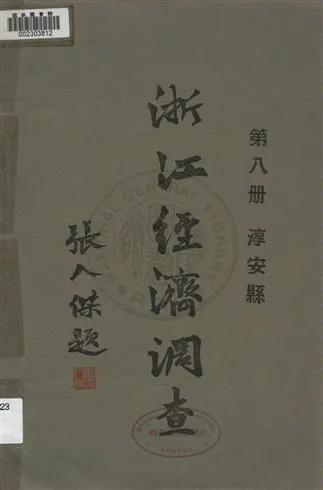 002303812
第八册 淳安縣
浙江經濟調查
張人傑題
NATIONAL CENTRAL LIBRARY
23